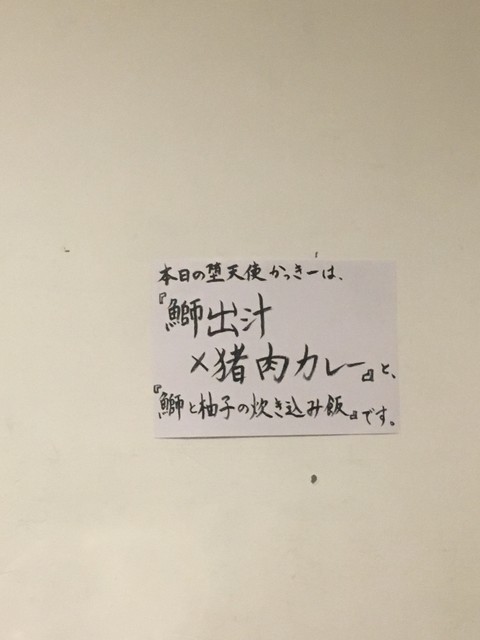 本日の堕天使かっきーは、
『鰤出汁
×猪肉カレー』と、
『鰤と柚子の炊き込み飯』です。